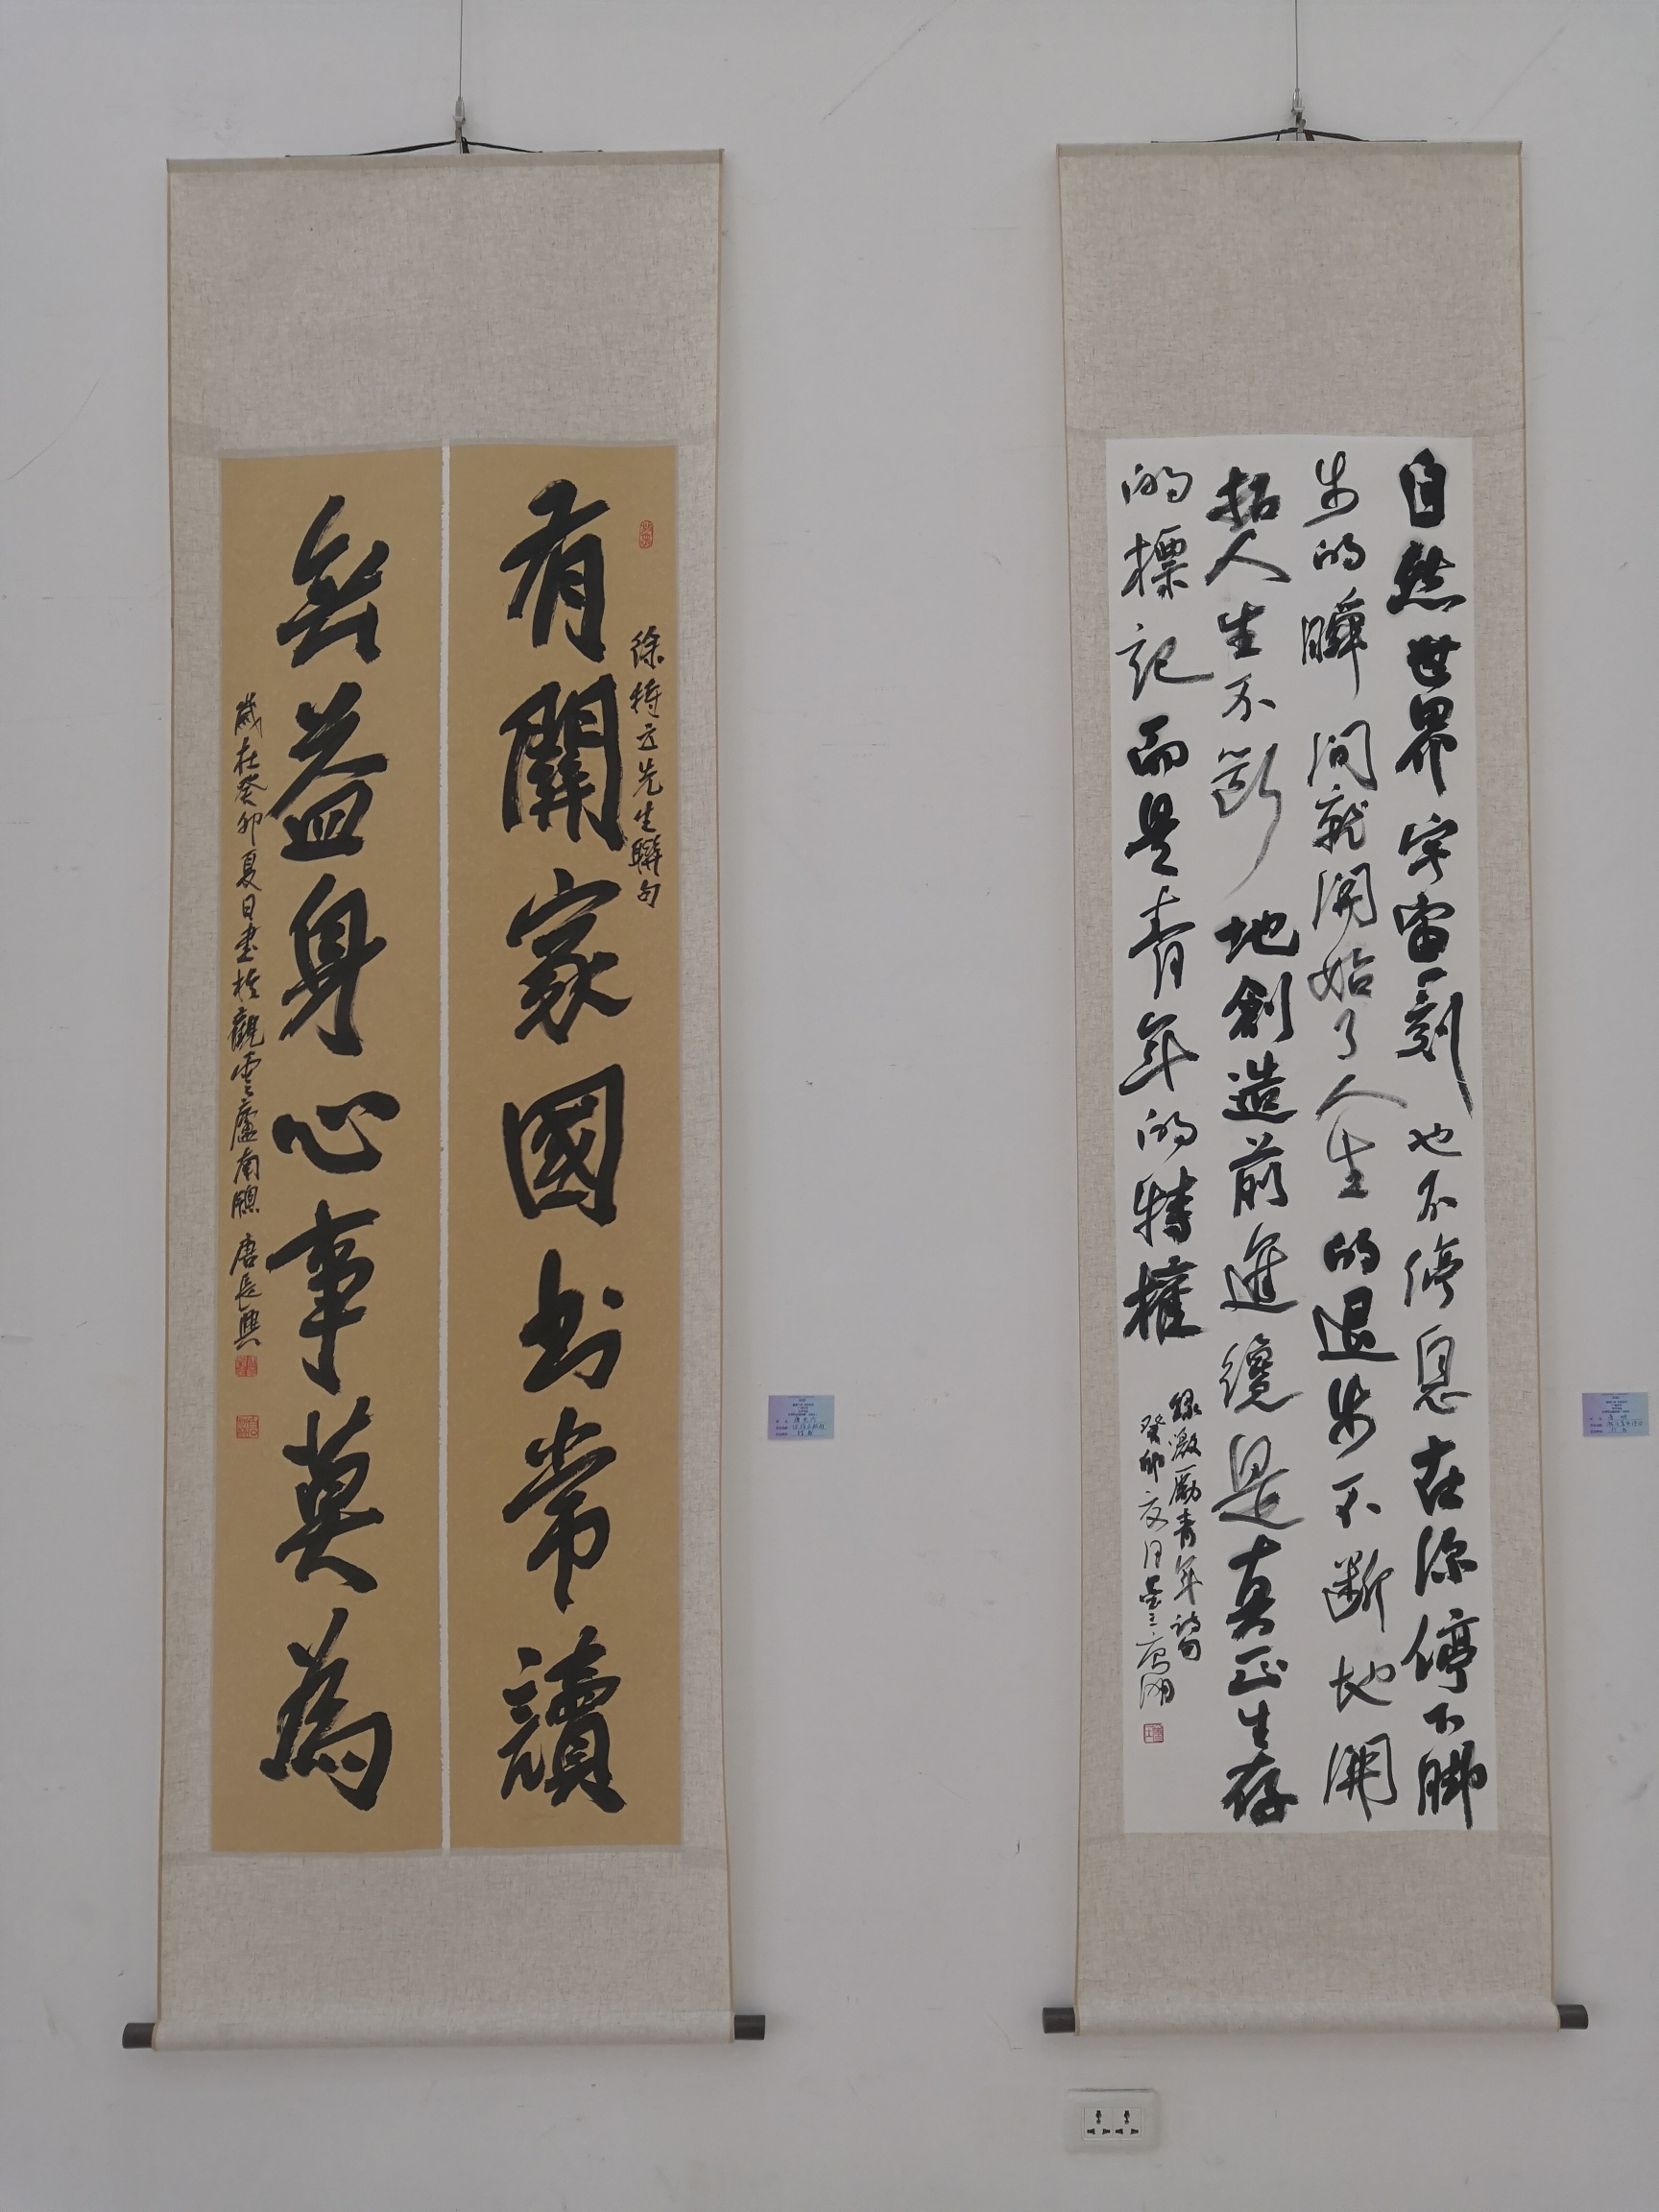 有關家國書常讀
徐特立先生聯句
無益身心事莫為
歲在癸卯夏日書於觀雲廬南窗 唐長興
自然世界宇宙一刻也不停息在你停下腳
步的瞬間就開始了人生的退步不斷地開
拓人生不斷地創造前進纔是真正生存
的標記而是青年的特權
錄激勵青年詩句
癸卯夏日